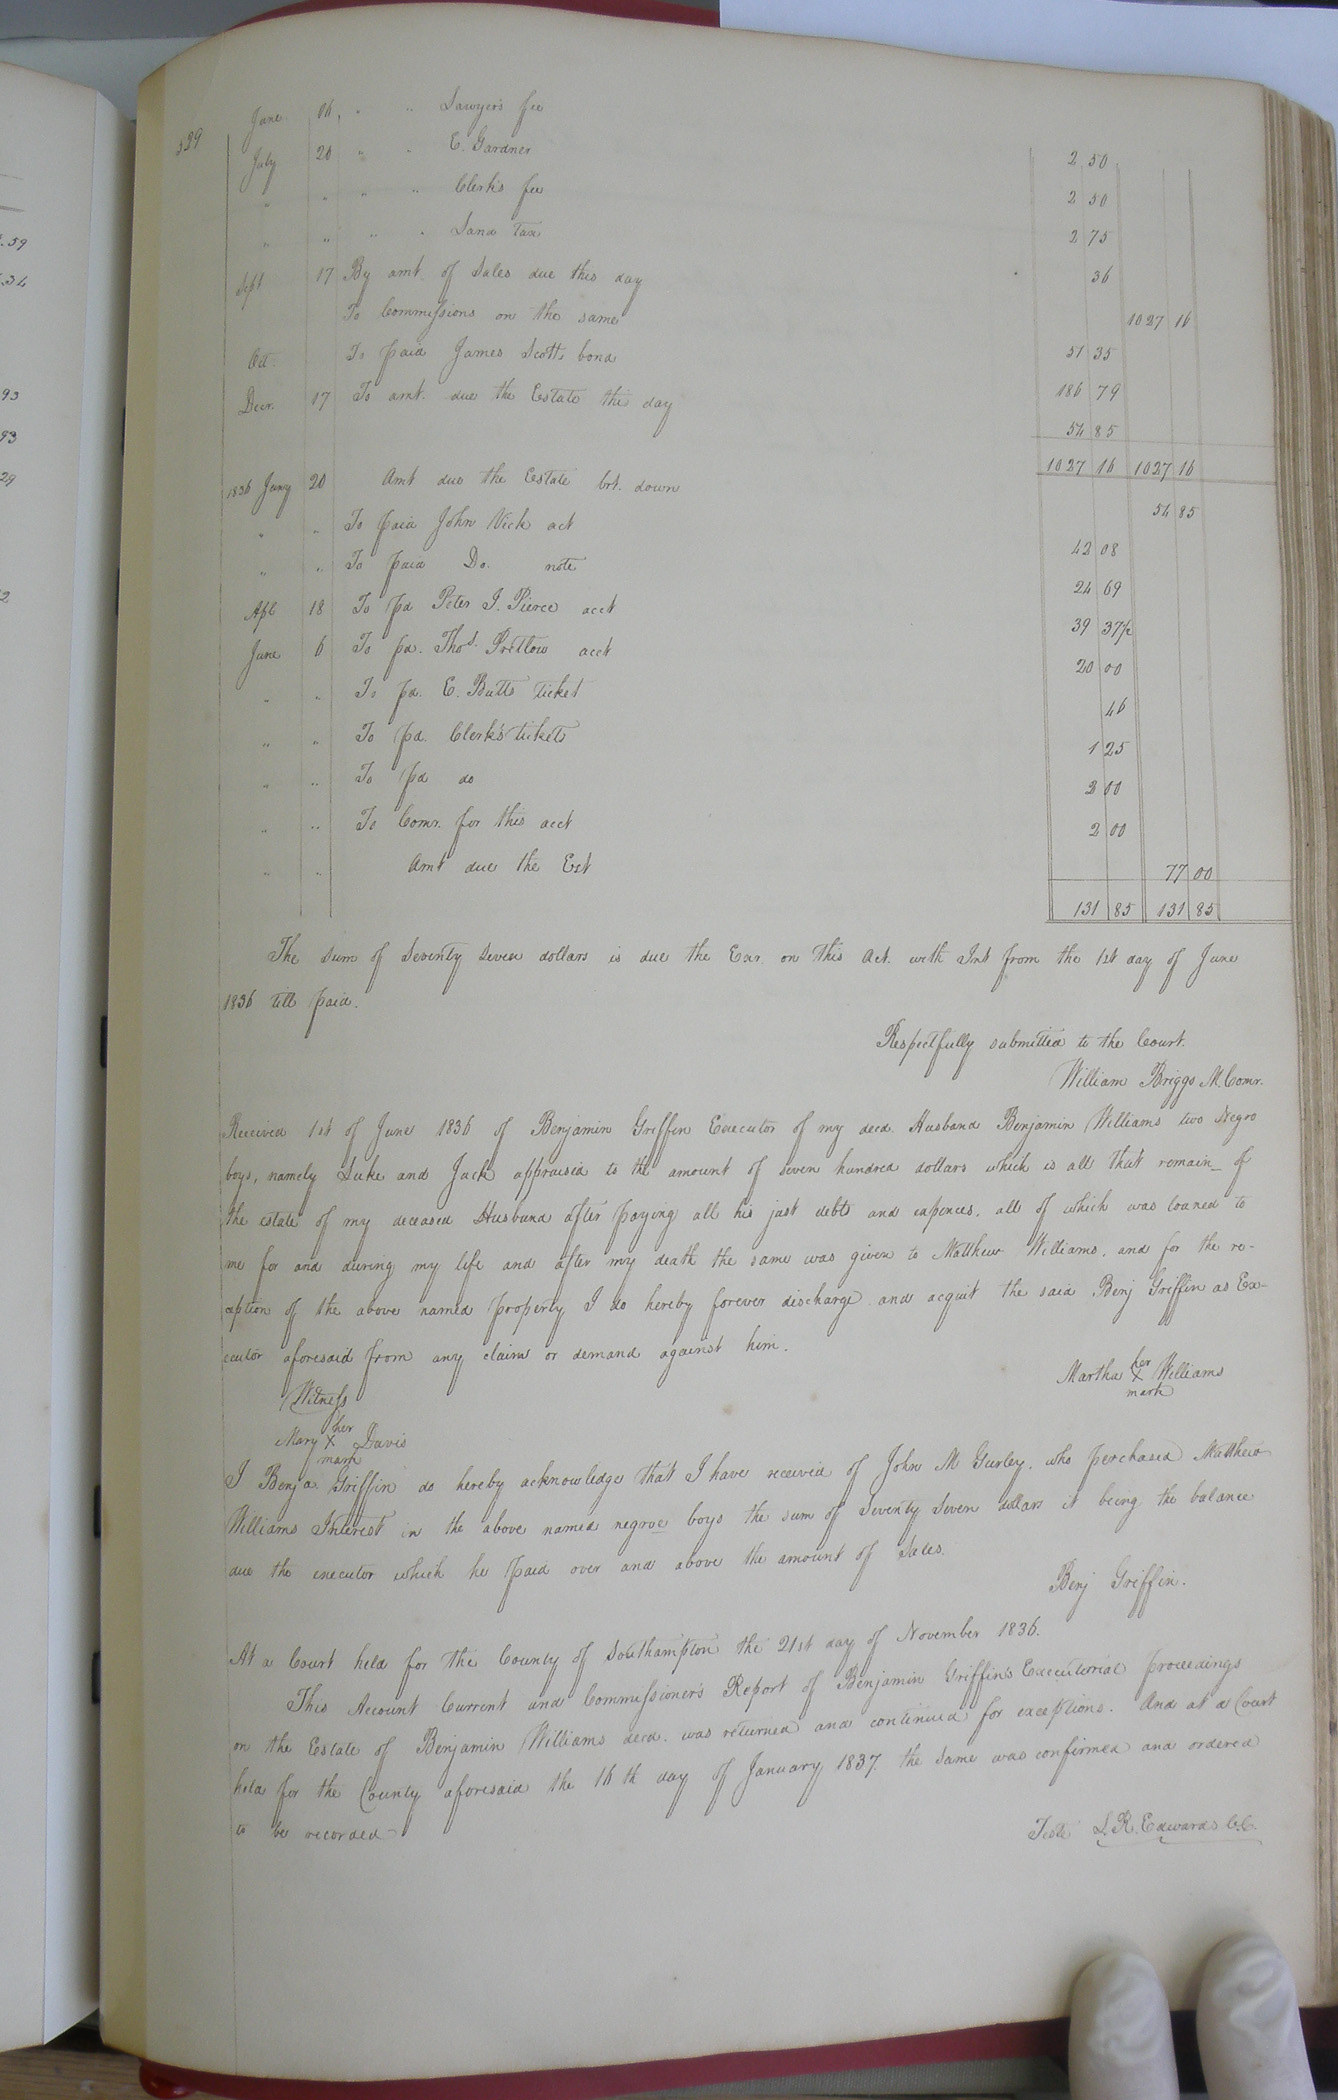 329
June 06, " " Lawyers fee 2 50
July 20 " " E. Gardner 2 50
" " " " Clerk's fee 2 75
" " " " Land Tax 36
Sept 17 By amt. of Sales due this day 1027 16
To Commissions on the same 51 35
Oct To paid James Scotts bond 186 79
Decr. 17 To amt. due the Estate this day 54 85
1027 16 1027 16
1836 Jany 20 Amt due the Estate brt. down 54 85
" " To paid John Vick act 42 08
" " To paid Do. note 24 69
Apl 18 To pd Peter J. Pierce acct 39 37½
June 6 To pd. Thos. Pretlow acct 20 00
" " To pd. E. Butts ticket 46
" " To pd. Clerk's tickets 1 25
" " To pd do 2 00
" " To Comr. for this acct 2 00
" " Amt due the Est 77 00
131 85 131 85
The Sum of Seventy Seven dollars is due the Exr. on this Act. with Int from the 1st day of June
1836 till paid.
Respectfully submitted to the Court.
William Briggs M. Comr.
Received 1st of June 1836 of Benjamin Griffin Executor of my decd. Husband Benjamin Williams two Negro
boys, namely Luke and Jack appraised to the amount of seven hundred dollars which is all that remain_ of
the estate of my deceased Husband after paying all his just debts and expences. all of which was loaned to
me for and during my life and after my death the same was given to Matthew Williams. and for the re-
ception of the above named property I do hereby forever discharge and acquit the said Benj Griffin as Ex-
ecutor aforesaid from any claim or demand against him.
Martha her X mark Williams
Witness
Mary her X mark Davis
I Benja. Griffin do hereby acknowledge that I have received of John M Gurley, who perchased Matthew
Williams Interest in the above named negroe boys the sum of Seventy Seven dollars it being the balance
due the executor which he paid over and above the amount of Sales.
Benj Griffin.
At a Court held for the County of Southampton the 21st day of November 1836.
This Account Current and Commissioner's Report of Benjamin Griffin's Executorial proceedings
on the Estate of Benjamin Williams decd. was returned and continued for exceptions. And at a Court
held for the County aforesaid the 16th day of January 1837. the same was confirmed and ordered
to be recorded
Teste L. R. Edwards C.C.